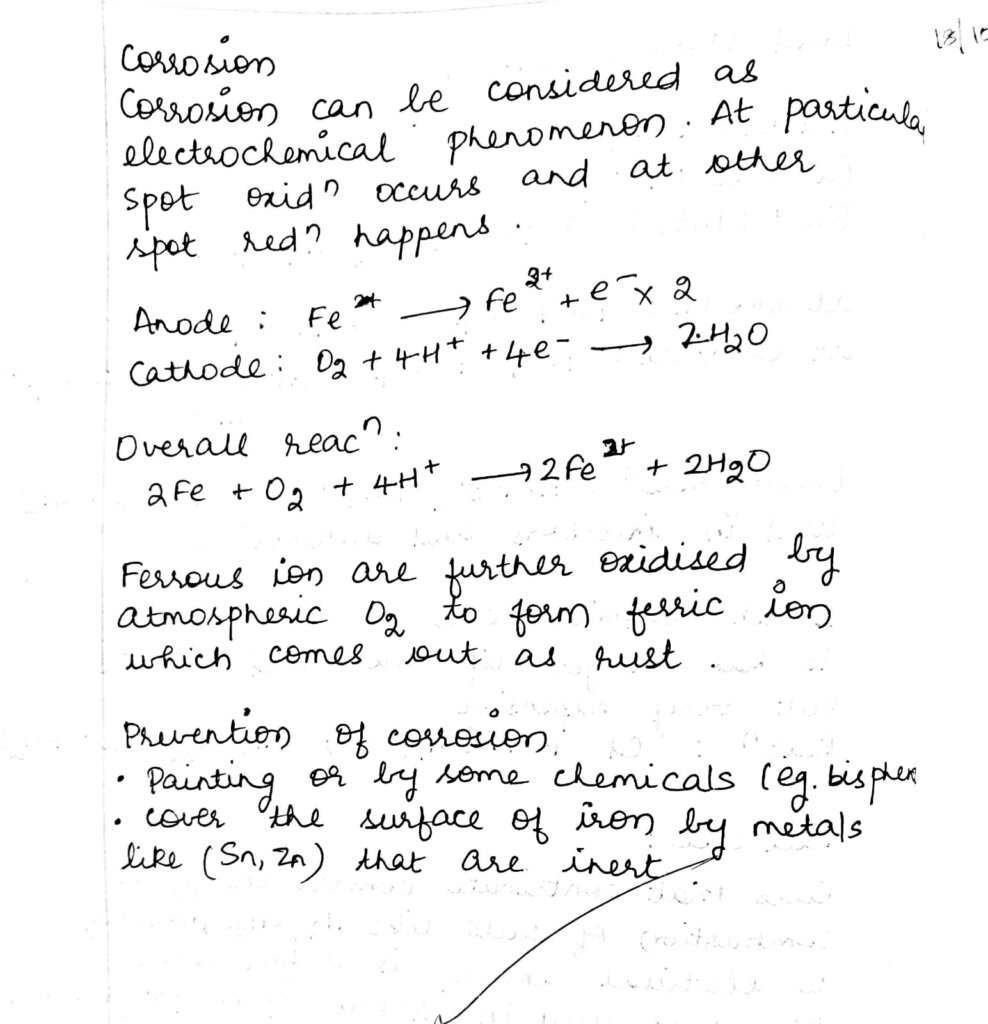 18/10
Corrosion
Corrosion can be considered as
electrochemical phenomenon. At particula
spot oxidⁿ occurs and at other
spot redⁿ happens.
Anode : Fe → Fe²⁺ + e⁻ x 2
Cathode : O₂ + 4H⁺ + 4e⁻ → 2H₂O
Overall reacⁿ:
2Fe + O₂ + 4H⁺ → 2Fe²⁺ + 2H₂O
Ferrous ion are further oxidised by
atmospheric O₂ to form ferric ion
which comes out as rust.
Prevention of corrosion:
• Painting or by some chemicals (eg. bisphen
• cover the surface of iron by metals
like (Sn, Zn) that are inert